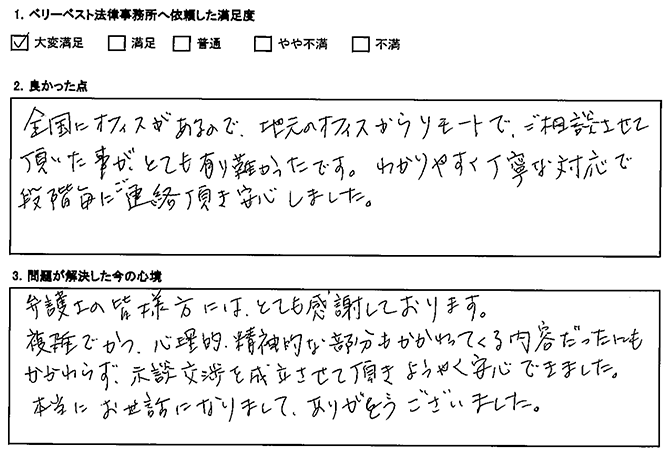 1. ベリーベスト法律事務所へ依頼した満足度
☑ 大変満足 □ 満足 □ 普通 □ やや不満 □ 不満
2. 良かった点
全国にオフィスがあるので、地元のオフィスからリモートで、ご相談させて
頂いた事が、とても有り難かったです。わかりやすく丁寧な対応で
段階毎にご連絡頂き安心しました。
3. 問題が解決した今の心境
弁護士の皆様方には、とても感謝しております。
複雑でかつ、心理的、精神的な部分もかかわってくる内容だったにも
かかわらず、示談交渉を成立させて頂きようやく安心できました。
本当にお世話になりまして、ありがとうございました。